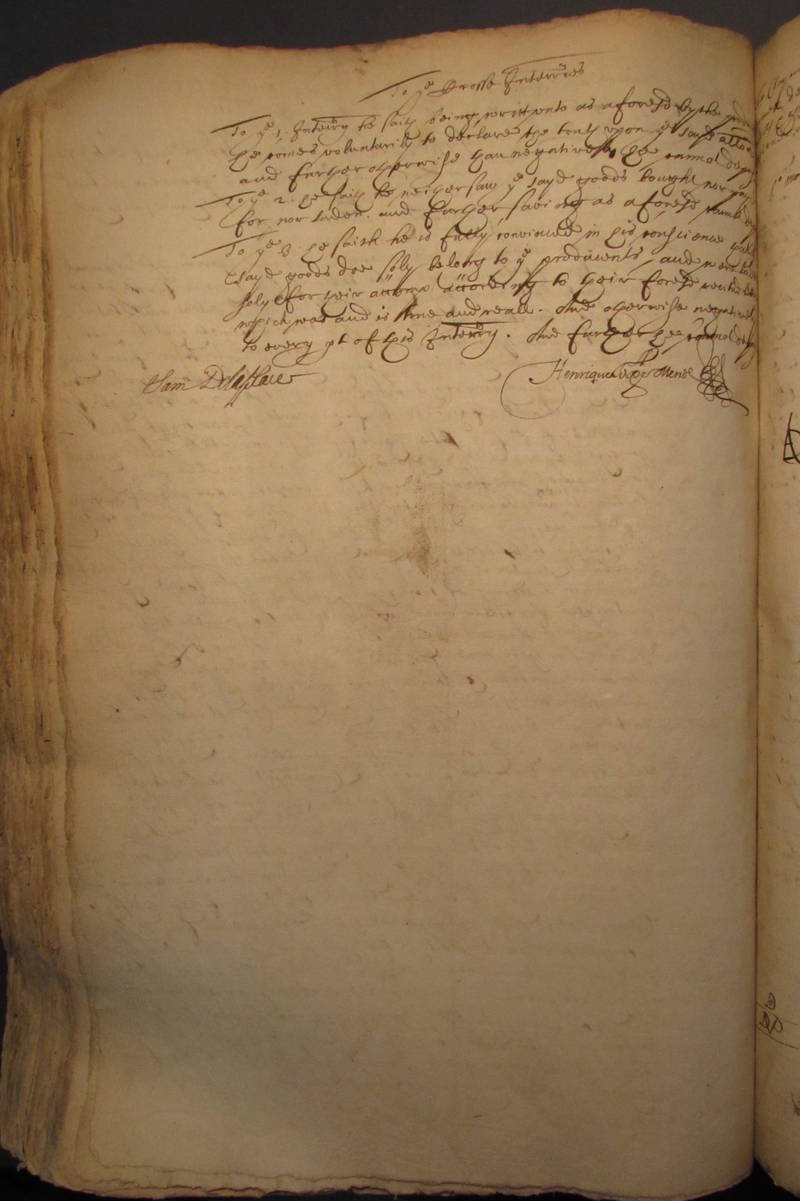 To ye Crosse Interries
To ye 1. Interry he saith being written to as aforesd by the
he comes voluntarily to declare the truth upon ye sayd
and further otherwise than negatively he cannot depose
To ye 2. he saith he neither saw ye sayd goods bought nor payd
for nor laden. and further saving as aforesd cannot
To ye 3. he saith he is fully convinced in his conscience
sayd goods doe soly belong to ye producents and were
soly for their accompt according to their foresd
which was and is true and reall. And otherwise negatively
to every pt of this Interry. And further he cannot depose
Sam
Henriques Mendes